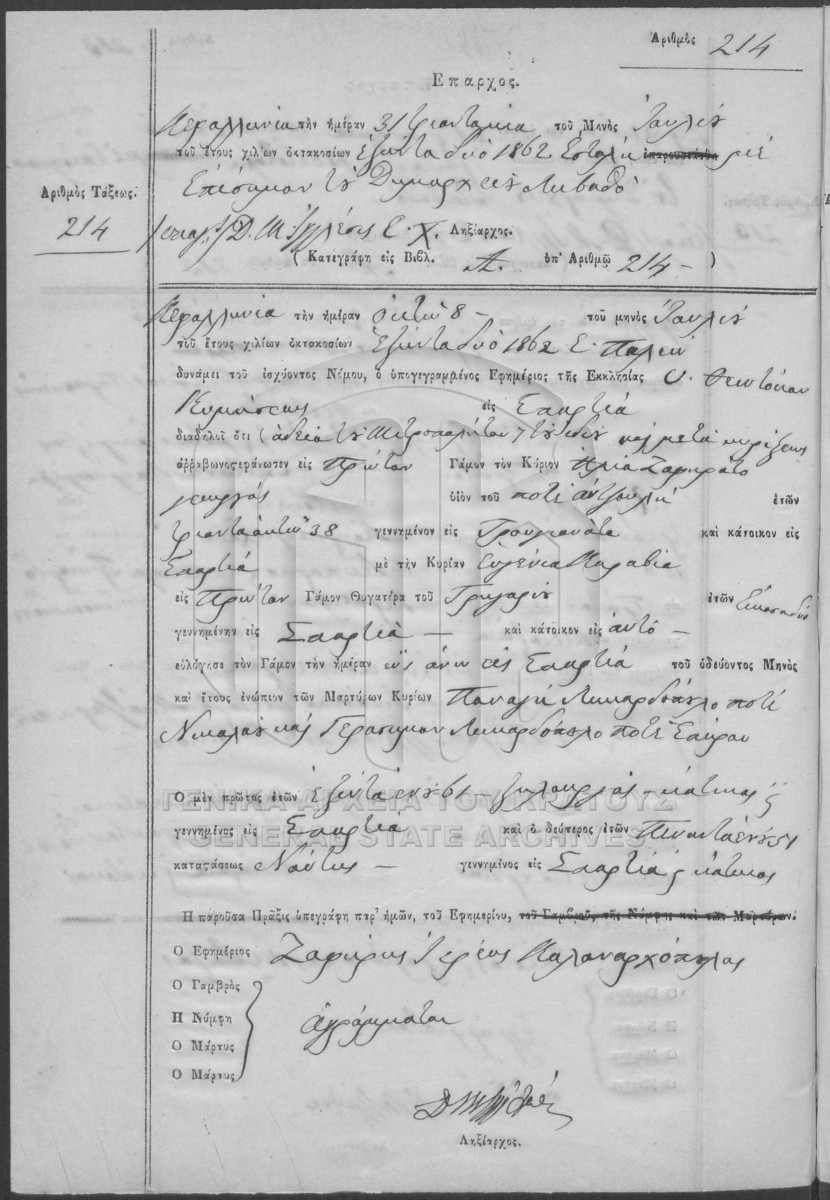 Ἀριθμὸς 214
Επαρχος.
Κεφαλληνία τὴν ἡμέραν 31 τριανταμία τοῦ Μηνὸς Ἰουλίου
τοῦ ἔτους χιλίων ὀκτακοσίων ἑξήντα δυὸ 1862 Εστάλη ἐπαρουσιάσθη μὲ
Ἐπίσημον τοῦ Δημαρχείου Λιβαθὸ
Ἀριθμὸς Τάξεως.
214
Ληξίαρχος.
( Κατεγράφη εἰς Βιβλ. Α. ὑπ' Ἀριθμῷ 214 – )
Κεφαλληνία τὴν ἡμέραν ὀκτὼ 8 – τοῦ μηνὸς Ἰουλίου
τοῦ ἔτους χιλίων ὀκτακοσίων ἑξήντα δυὸ 1862 Ε. Παλαιὸ
δυνάμει τοῦ ἰσχύοντος Νόμου, ὁ ὑπογεγραμμένος Ἐφημέριος τῆς Ἐκκλησίας Υ. Θεοτόκου
Κοιμήσεως εἰς Σπαρτιά
διαδηλοῖ ὅτι ( ἀδεία τοῦ Μητροπολίτου 7 τοῦ ἰδίου καὶ μετὰ κηρύξεως
ἀρραβῶνος ἐφάνωσεν εἰς Πρῶτον Γάμον τὸν Κύριον Ἠλία Ζαφειράτο
γεωργός υἱὸν τοῦ ποτὲ Ἀντζουλῆ ἐτῶν
τριανταοκτὼ 38 γεννημένον εἰς Τρουγιανάτα καὶ κάτοικον εἰς
Σπαρτιά μὲ τὴν Κυρίαν Εὐγένια Καραβία
εἰς Πρῶτον Γάμον Θυγατέρα τοῦ Γρηγορίου ἐτῶν Εἰκοσιδύο
γευνημένην εἰς Σπαρτιὰ – καὶ κάτοικον εἰς αὐτό –
εὐλόγησε τὸν Γάμον τὴν ἡμέραν ὡς ἄνω εἰς Σπαρτιά τοῦ ὁδεύοντος Μηνὸς
καὶ ἔτους ἐνώπιον τῶν Μαρτύρων Κυρίων Παναγῆ Λικαρδόπουλο ποτὲ
Νικολάου καὶ Γεράσιμον Λικαρδόπουλο ποτὲ Σπύρου
Ὁ μὲν πρῶτος ἐτῶν ἑξήντα ἑνὸς 61 – ξυλουργός – κάτοικος ς
γεννημένος εἰς Σπαρτιά καὶ ὁ δεύτερος ἐτῶν Πενηνταενὸς 51
καταστάσεως Ναύτης – γεννημένος εἰς Σπαρτιά ς κάτοικος
Ἡ παροῦσα Πρᾶξις ὑπεγράφη παρ' ἡμῶν, τοῦ Ἐφημερίου, τοῦ Γαμβροῦ, τῆς Νύμφης καὶ τῶν Μαρτύρων.
Ὁ Ἐφημέριος Ζαφείρης Ἱερέως Καλαναρχόπουλος
Ὁ Γαμβρὸς
Ἡ Νύμφη ἀγράμματοι
Ὁ Μάρτυς
Ὁ Μάρτυς
Ληξίαρχος.
ΓΕΝΙΚΑ ΑΡΧΕΙΑ ΤΟΥ ΚΡΑΤΟΥΣ
GENERAL STATE ARCHIVES